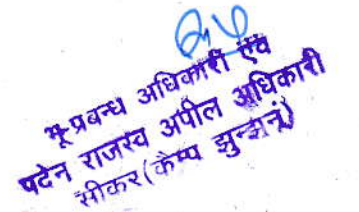 भू प्रबन्ध अधिकारी एंव
पदेन राजस्व अपील अधिकारी
सीकर (कैम्प झुन्झुनूं)